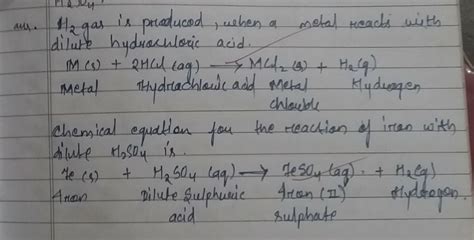 H₂SO₄
ans. H₂ gas is produced, when a metal reacts with
dilute hydrochloric acid.
M(s) + 2HCl (aq) → MCl₂ (s) + H₂(g)
Metal Hydrochloric acid Metal Hydrogen
Chloride
Chemical equation for the reaction of iron with
dilute H₂SO₄ is.
Fe (s) + H₂SO₄ (aq) → FeSO₄ (aq) + H₂(g)
Iron Dilute Sulphuric Iron (II) Hydrogen.
acid sulphate